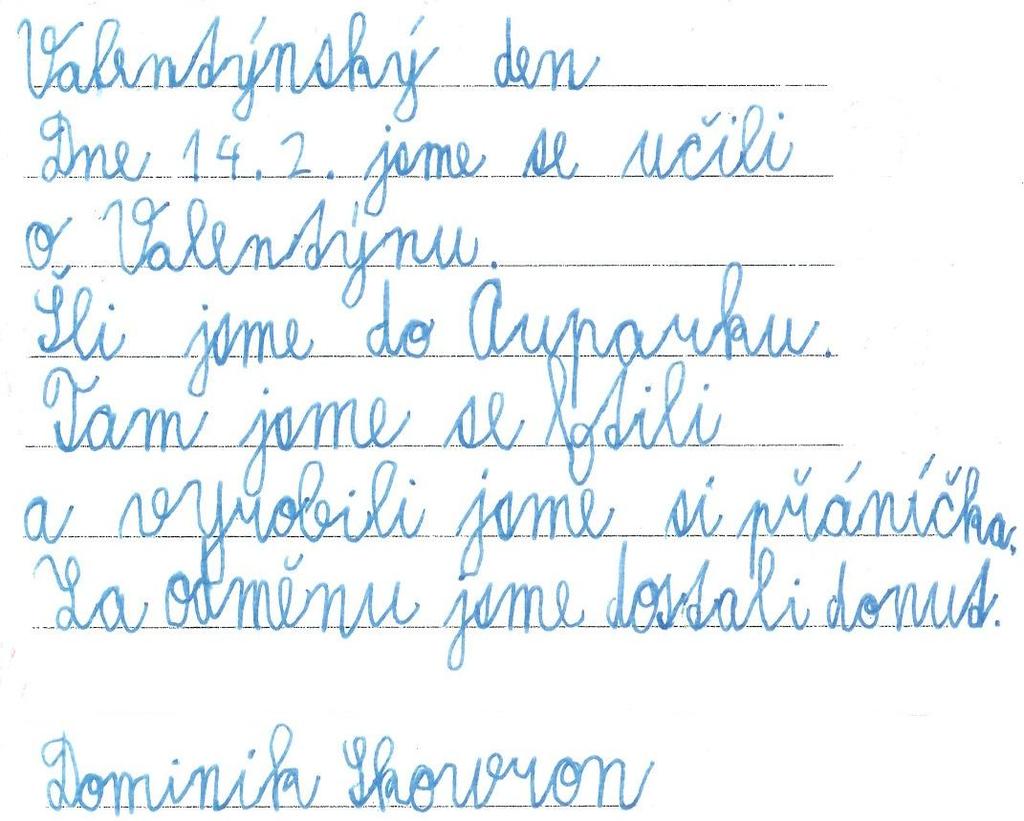 Valentýnský den
Dne 14. 2. jsme se učili
o Valentýnu.
Šli jsme do Auparku.
Tam jsme se fotili
a vyrobili jsme si přáníčka.
Za odměnu jsme dostali donut.
Dominik Skowron